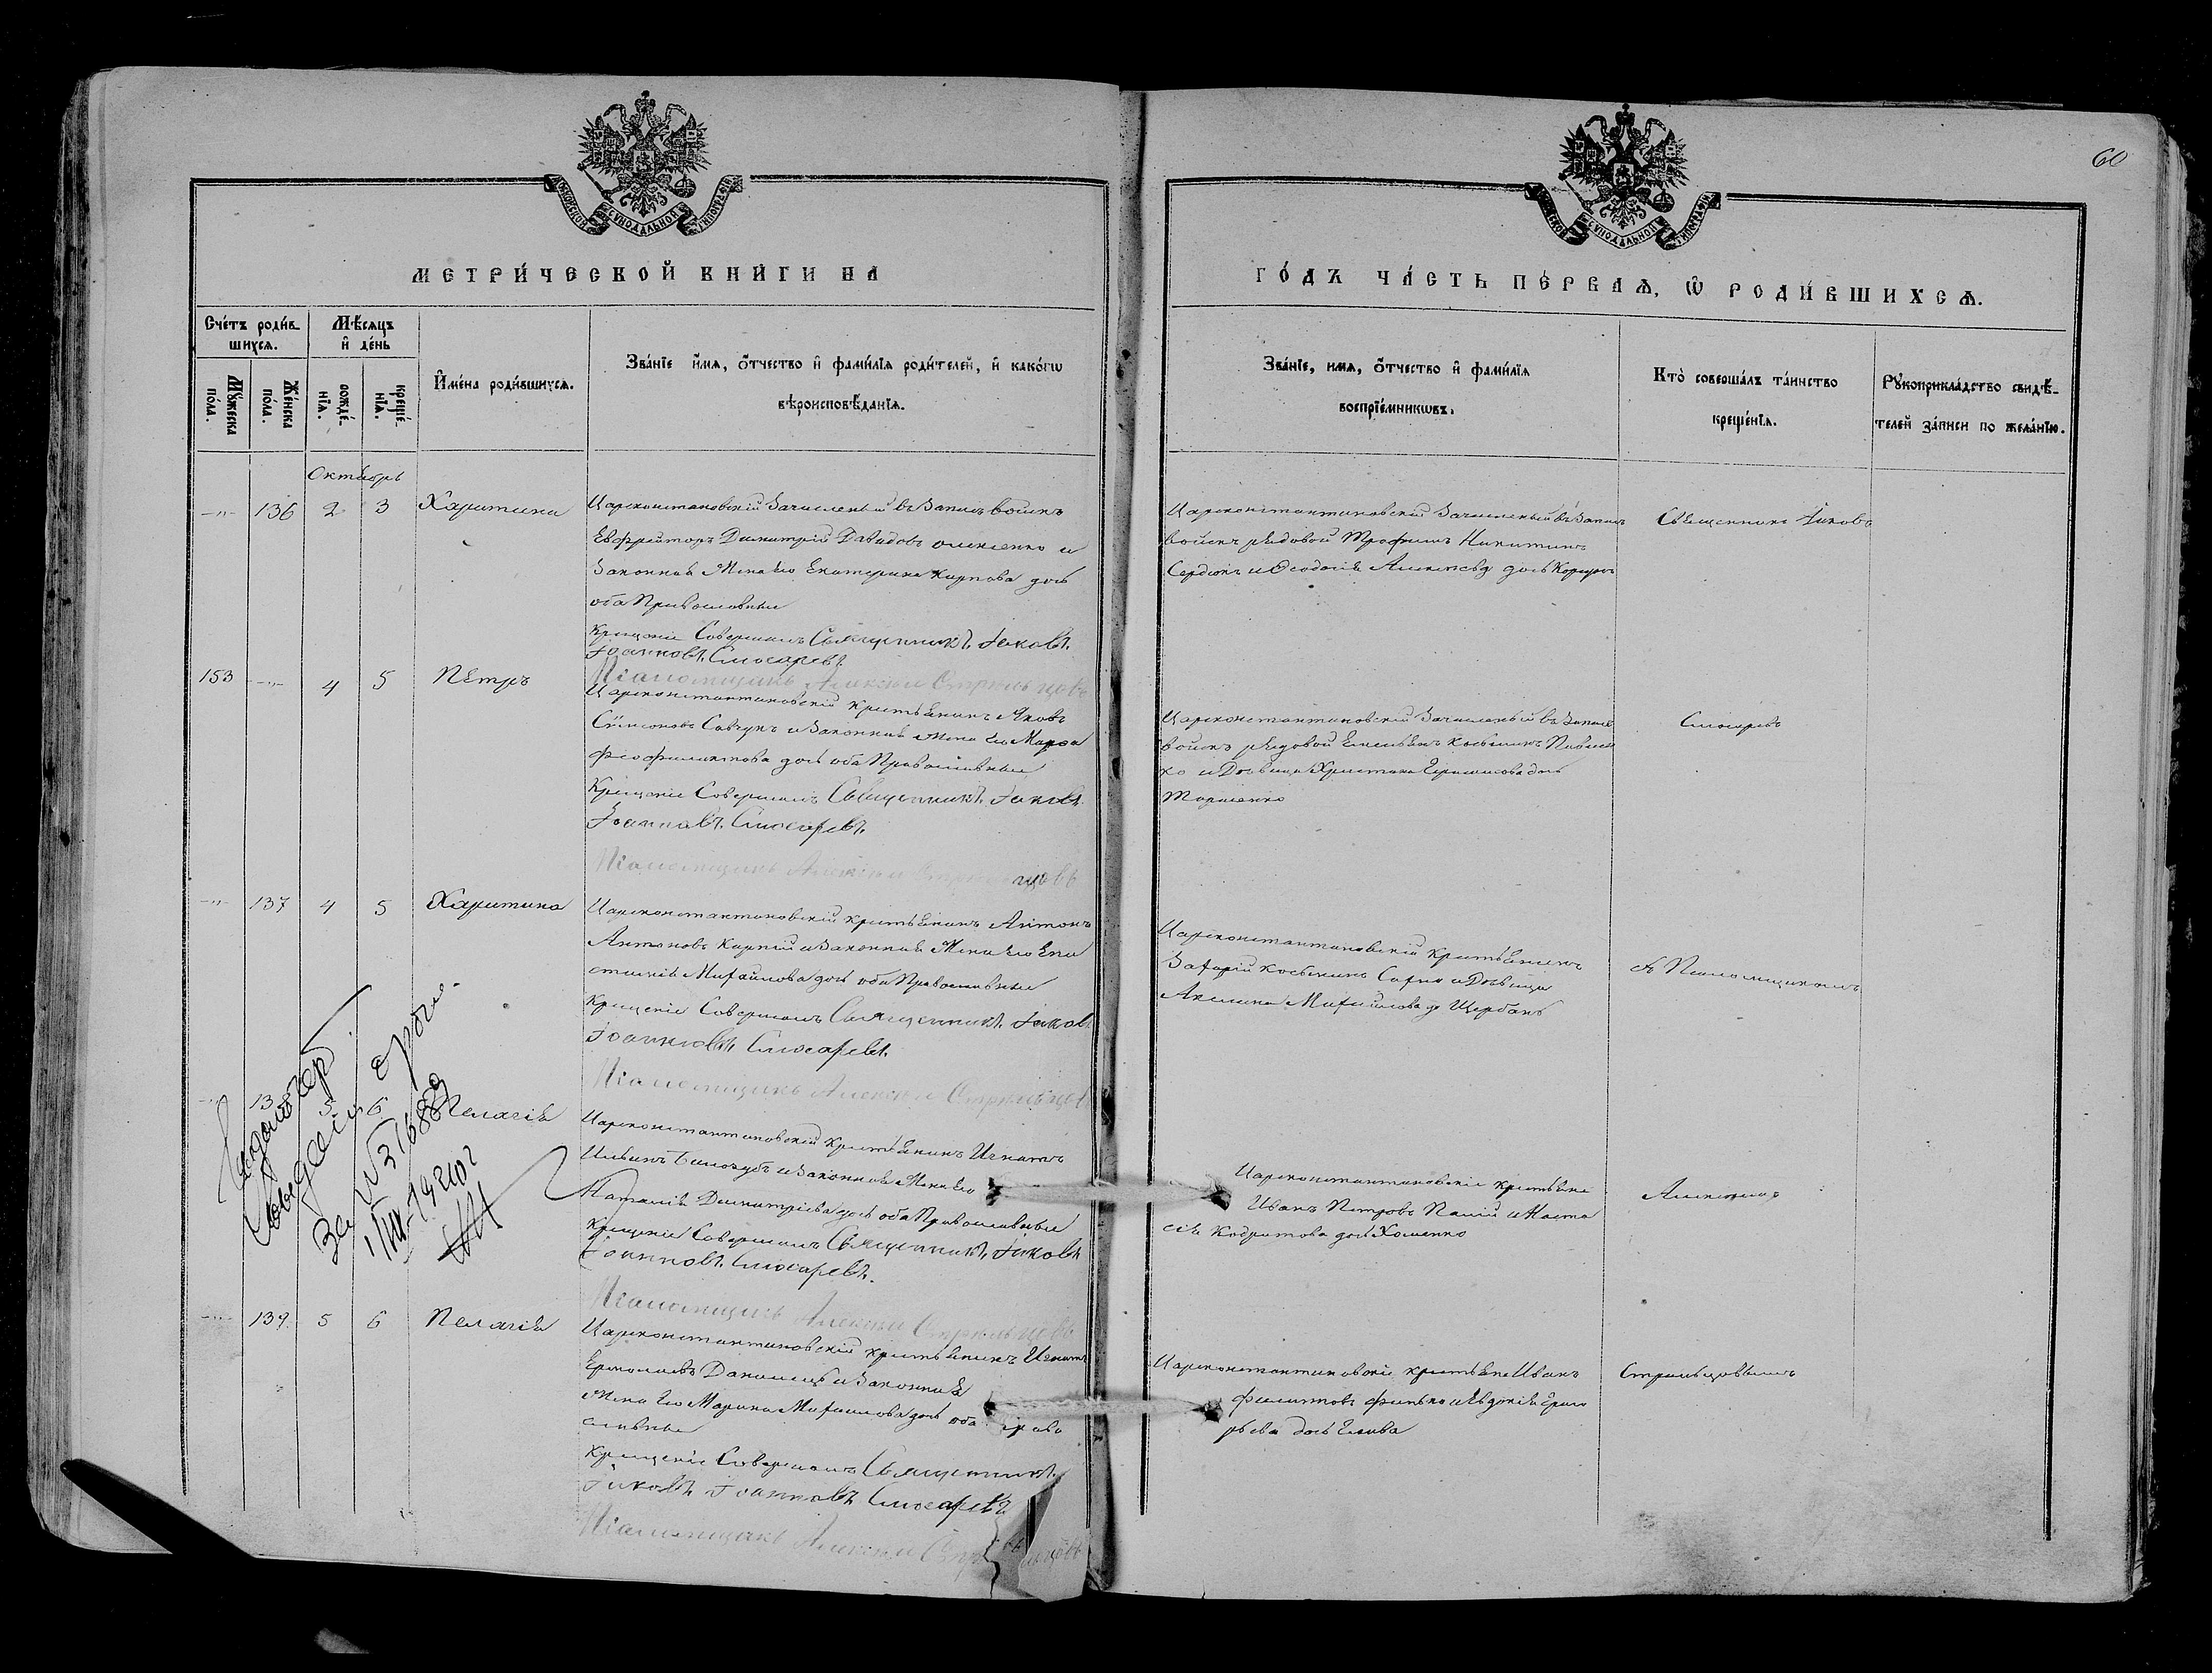 60
МЕТРИ́ЧЕСКОЙ КНИ́ГИ НА
ГО́ДЪ ЧА́СТЬ ПЕ́РВАѦ, Ѡ РОДИ́ВШИХСѦ.
Сче́тъ роди́в-
шихсѧ.
Мѣ́сѧцъ
и҆ де́нь
Мꙋ́жеска
по́ла.
Же́нска
по́ла.
рожде́-
нїѧ.
креще́-
нїѧ.
И҆мена̀ роди́вшихсѧ.
Зва́нїе и҆́мѧ, ѻ҆́тчество и҆ фами́лїѧ роди́телей, и҆ како́гѡ
вѣроисповѣ́данїѧ.
Зва́нїе, имѧ, ѻ҆́тчество и҆ фами́лїѧ
воспрїе́мникѡвъ.
Кто̀ соверша́лъ та́инство
креще́нїѧ.
Рꙋкоприкла́дство свидѣ́-
телей за́писи по жела́нїю.
Октябрь
—„— 136 2 3 Харитина
Евфрейторъ Димитрій Давидовъ и
Законная Жена его Екатерина Карпова дочь
оба Православные
Крещеніе Совершалъ Священникъ Іаковъ
Іоанновъ Слюсаревъ
Псаломщикъ Алексѣй Стрельцовъ
Цареконстантиновскій Зачисленный въ Запасъ
войскъ рядовой Трофимъ Никитинъ
Сердюкъ и Ѳеодосія дочь
Священникъ Іаковъ
153 —„— 4 5 Петръ
Цареконстантиновскій крестьянинъ Яковъ
Симеоновъ Савчукъ и Законная Жена его Марѳа
Феофилактова дочь оба Православные
Крещеніе Совершалъ Священникъ Іаковъ
Іоанновъ Слюсаревъ
Псаломщикъ Алексѣй Стрельцовъ
Цареконстантиновскій Зачисленный въ Запасъ
войскъ рядовой Емельянъ Косьминъ
ко и Дѣвица Христина Герасимова дочь
Слюсаревъ
—„— 137 4 5 Харитина
Цареконстантиновскій крестьянинъ Антонъ
Антоновъ Карпій и Законная Жена его
Михайлова дочь оба Православные
Крещеніе Совершалъ Священникъ Іаковъ
Іоанновъ Слюсаревъ
Псаломщикъ Алексѣй Стрельцовъ
Цареконстантиновскій крестьянинъ
Захарій Косьминъ и Дѣвица
Акилина Михайлова д Щербакъ
съ Псаломщикомъ
—„— 138 5 6 Пелагія
Цареконстантиновскій крестьянинъ Игнатъ
Ильинъ Билозубъ и Законная Жена его
Наталія Димитріева дочь оба Православные
Крещеніе Совершалъ Священникъ Іаковъ
Іоанновъ Слюсаревъ.
Псаломщикъ Алексѣй Стрельцовъ
Цареконстантиновскіе крестьяне
Иванъ Петровъ Палій и Наста
сія Кодратова дочь Хоменко
Алексіемъ
—„— 139. 5 6 Пелагія
Цареконстантиновскій крестьянинъ Игнатъ
Ермолаевъ Данилецъ и Законная
Жена его Марина Михаилова дочь оба право
славные
Крещеніе Совершалъ Священникъ
Іаковъ Іоанновъ Слюсаревъ
Псаломщикъ Алексѣй Стрельцовъ
Цареконстантиновскіе крестьяне Иванъ
Филиповъ Финько и Евдокія Григо
рьева дочь
Стрельцовымъ